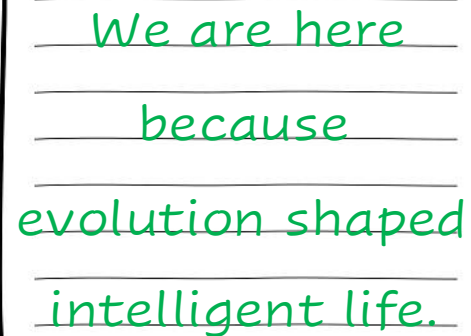 We are here
because
evolution shaped
intelligent life.